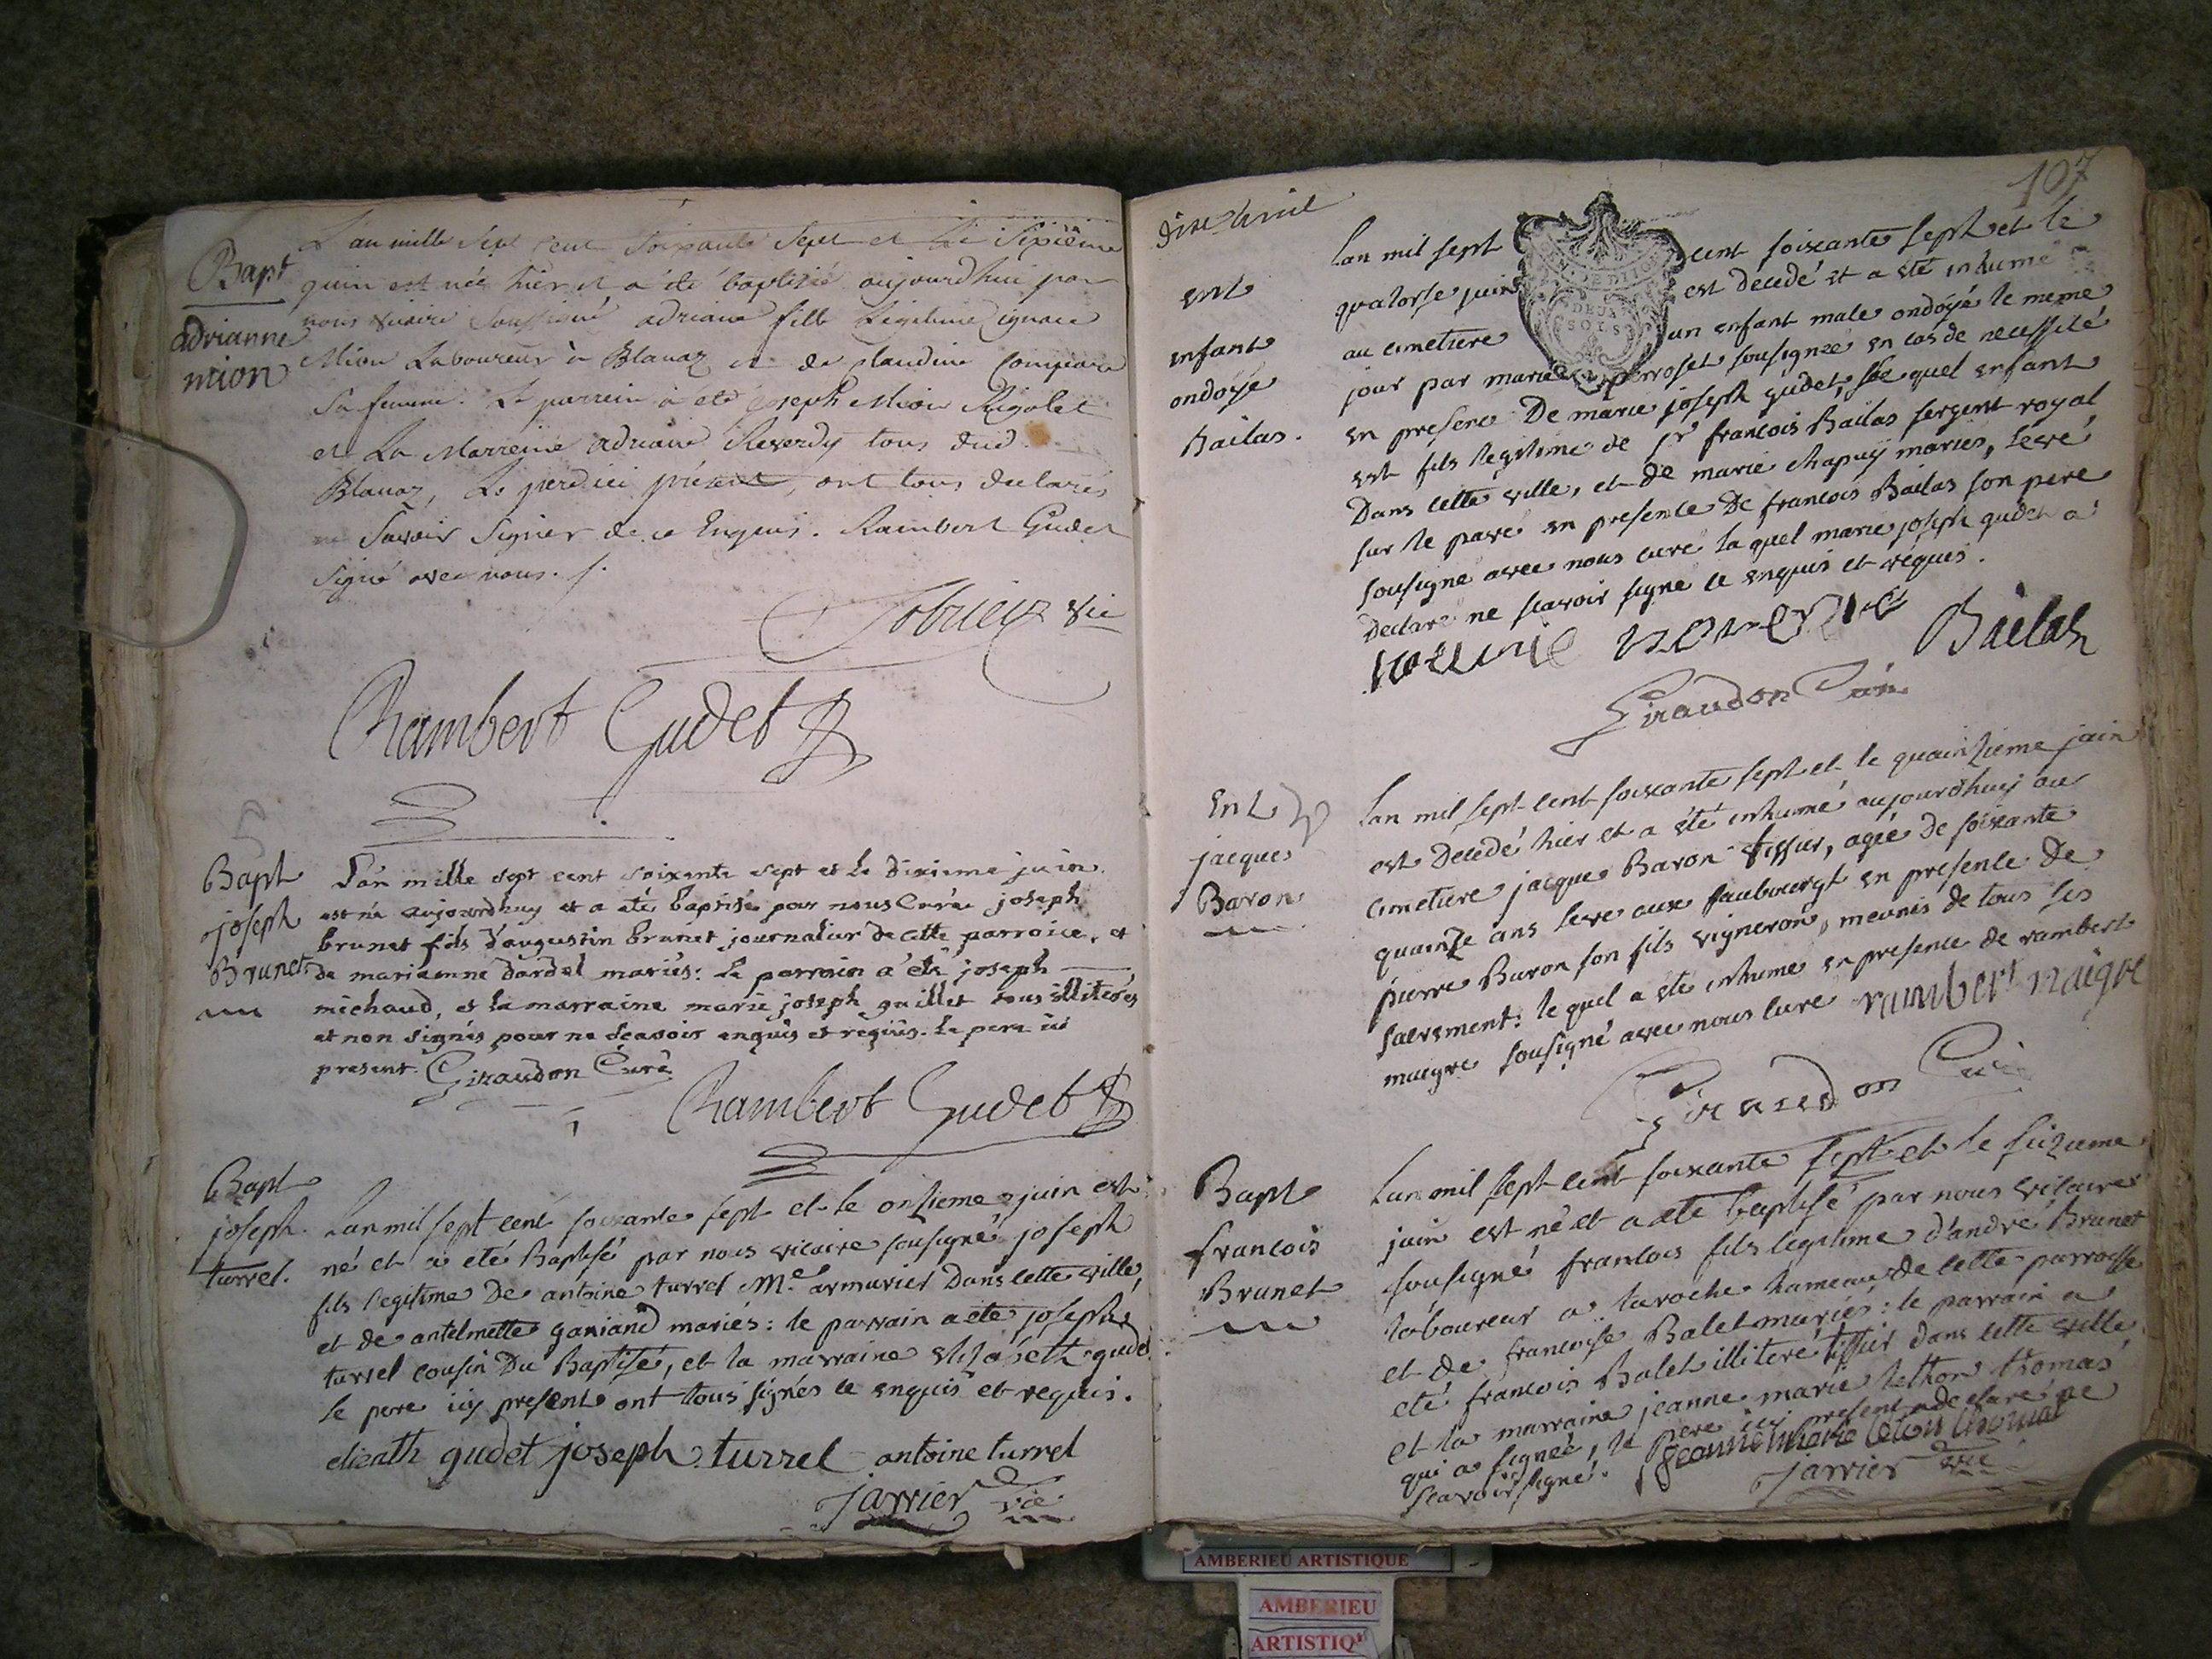 Bapt
adrianne
mion
L'an mille Sept Cent Soixante Sept et Le Sixième
quin est née hier et a été baptizé aujourd'hui par
nous vicaire Soussigné adriane fille Légitime ignace
Mion Laboureur à Blanaz et de Claudine
Sa femme. Le parrein a été joseph Mion Rigolet
et La Marreine adriane Reverdy tous dud.
Blanaz, Le per d'ici présent, ont tous declarés
ne Savoir Signer de ce Enquis. Rambert Gudet
Signé avec nous.
vic
Rambert Gudet
Bapt
joseph
Brunet
L'an mille sept cent soixente sept et le dixieme juin
est né aujourdhuy et a été baptisé par nous Curé joseph
brunet fils d'augustin brunet journalier de cette parroice, et
de marianne dardel mariés: le parrain a été joseph
michaud, et la marraine marie joseph guillet tous illiterés
et non signés pour ne scavoir enquis et requis. le pere ici
present. Giraudon Curé
Rambert Gudet
Bapt
joseph
turrel.
Lan mil sept cent soixante sept et le onzieme juin est
né et a eté Baptisé par nous vicaire sousigné joseph
fils legitime De antoine turrel Me armurier Dans cette ville,
et de antelmette ganiand mariés: le parrain a ete joseph
turrel cousin Du Baptisé, et la marraine elizabeth gudet
le pere icy present ont tous signés ce enquis et requis.
elizabth gudet joseph turrel antoine turrel
Jarrier vic
107
ent
enfant
ondoyé
Bailas.
Lan mil sept cent soixante sept et le
quatorse juin est decedé et a eté inhumé
au cimetiere un enfant male ondoyé le meme
jour par marie perroset sousignée en cas de necessité
en presence De marie joseph gudet, le quel enfant
est fils legitime de sr francois Bailas sergent royal
Dans cette ville, et de marie chapuy mariés, levé
sur le pavé en presence De francois Bailas son pere
sousigné avec nous curé la quel marie joseph gudet a
declaré ne scavoir signé ce enquis et requis.
Bailas
Giraudon Curé
Ent
jacques
Baron
Lan mil sept cent soixante sept et le quainzieme juin
est Decedé hier et a été inhumé aujourdhuy au
cimetiere jacque Baron tissier, agée de soixante
quainze ans levé aux faubourgt en presence de
pierre Baron son fils vigneron, meunis de tous ses
sacrement: le quel a ete inhumé en presence de rambert
maigre sousigné avec nous curé rambert maigre
Giraudon Curé
Bapt
francois
Brunet
Lan mil sept cent soixante sept et le suizieme
juin est né et a ete baptisé par nous vicaire
sousigné francois fils legitime d'andré Brunet
laboureur a laroche hameau de cette parroisse
et de francoise Balet mariés: le parrain a
eté francois Balet illiteré tissier dans cette ville
et la marraine jeanne marie lethon thomas
qui a signée, le pere icy present a declaré ne
scavoir signé. jeanne marie
Jarrier vic
AMBERIEU ARTISTIQUE
AMBERIEU
ARTISTIQ